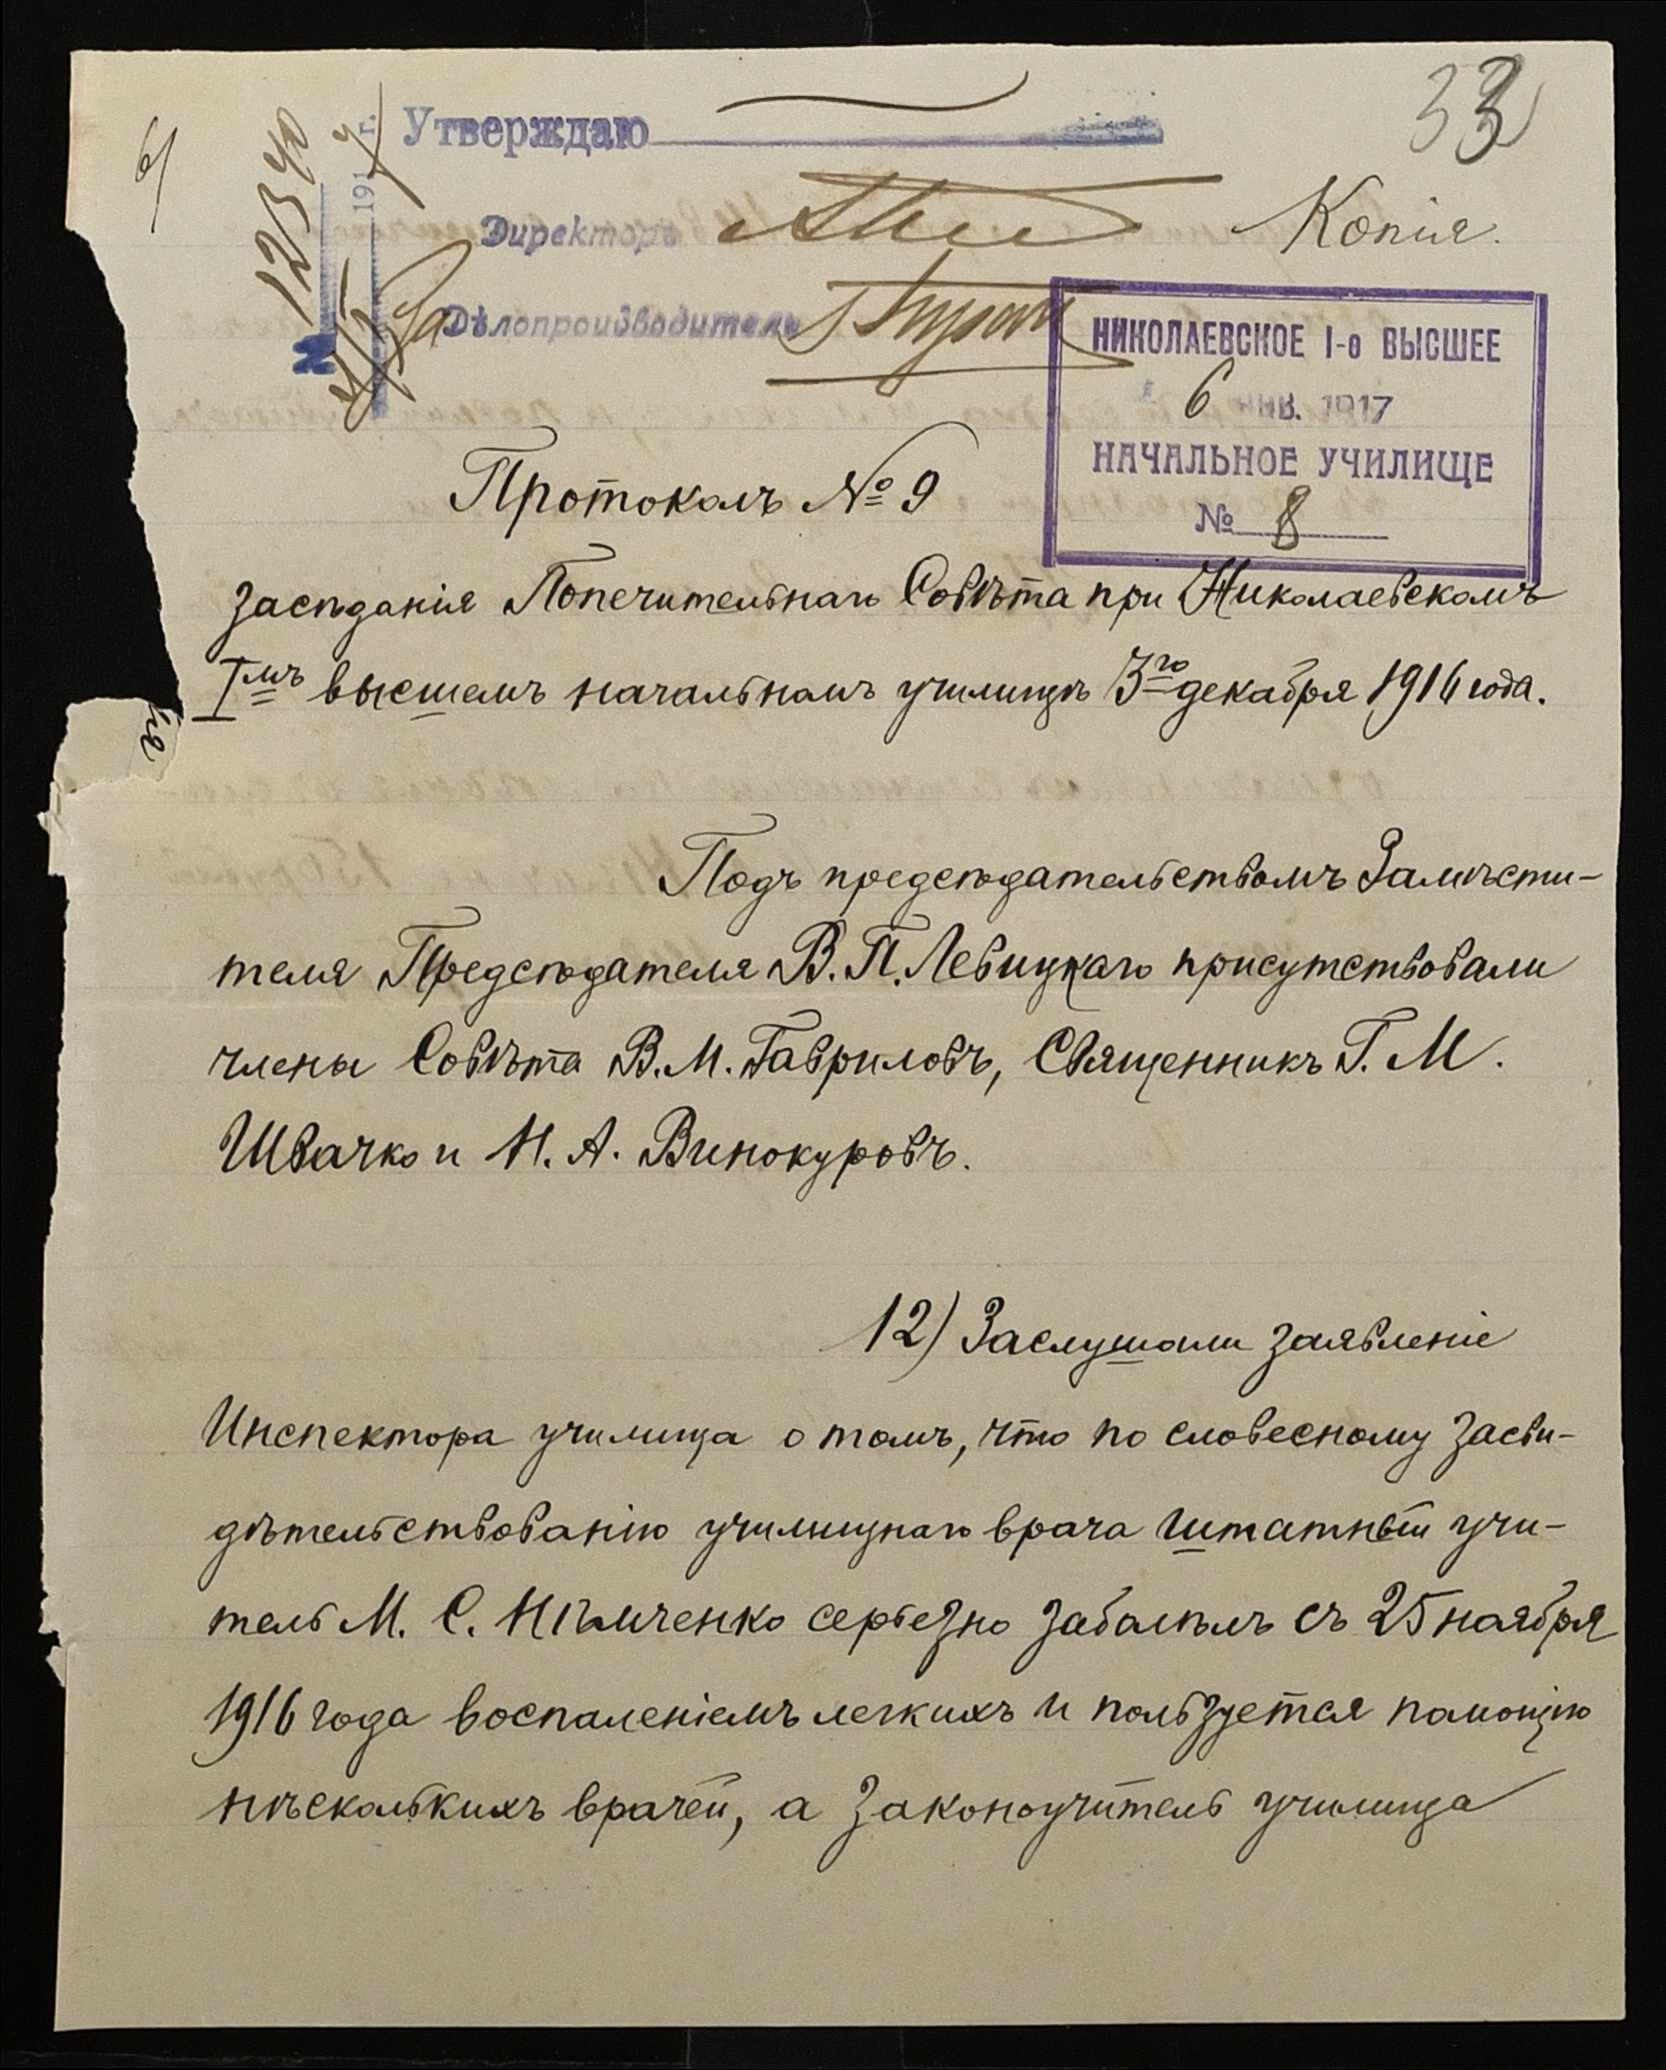 33
Утверждаю
191 г.
Директоръ
Копія.
Дѣлопроизводитель
№
НИКОЛАЕВСКОЕ I-о ВЫСШЕЕ
6 ЯНВ. 1917
НАЧАЛЬНОЕ УЧИЛИЩЕ
№ 8
Протоколъ № 9
засѣданія Попечительнаго Совѣта при Николаевскомъ
Iмъ высшемъ начальномъ училищѣ 3го декабря 1916 года.
Подъ предсѣдательствомъ Замѣсти-
теля Предсѣдателя В. П. Левицкаго присутствовали
члены Совѣта В. М. Гавриловъ, Священникъ Г. М.
Швачко и Н. А. Винокуровъ.
12) Заслушали заявленіе
Инспектора училища о томъ, что по словесному засви-
дѣтельствованію училищнаго врача штатный учи-
тель М. С. Нѣмченко серьезно заболѣлъ съ 25 ноября
1916 года воспаленіемъ легкихъ и пользуется помощію
нѣсколькихъ врачей, а законоучитель училища